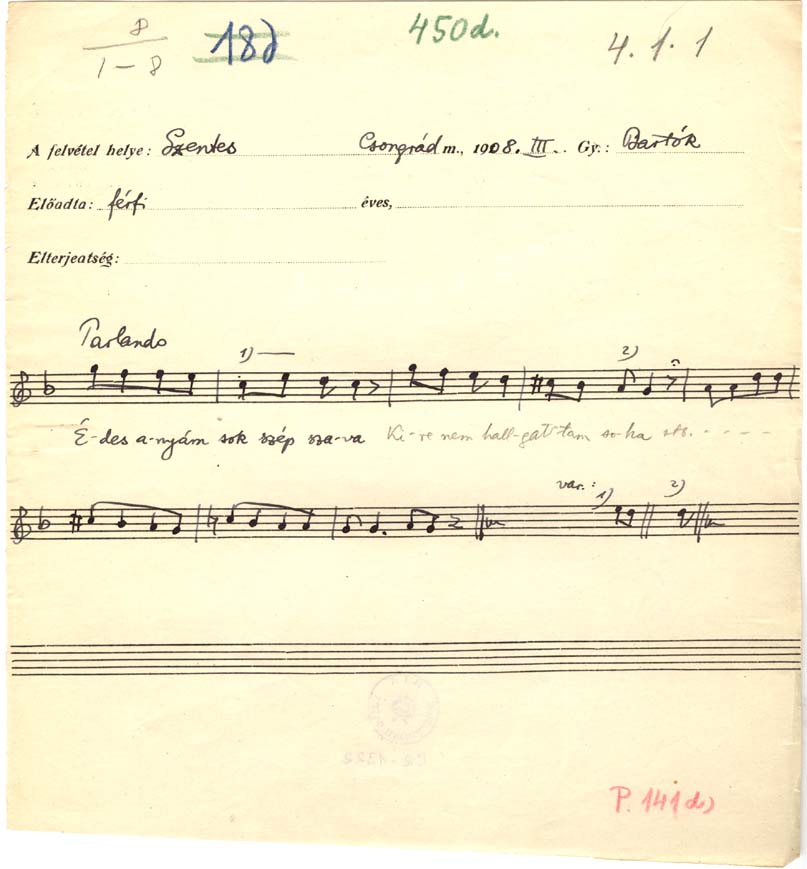 8
1-8 18d 450d. 4.1.1
A felvétel helye: Szentes Csongrád m., 1908. III. Gy.: Bartók
Előadta: férfi éves,
Elterjedtség:
Parlando
1) 2)
É-des a-nyám sok szép sza-va Ki-re nem hall-gat-tam so-ha stb.
var.: 1) 2)
P. 141(d)